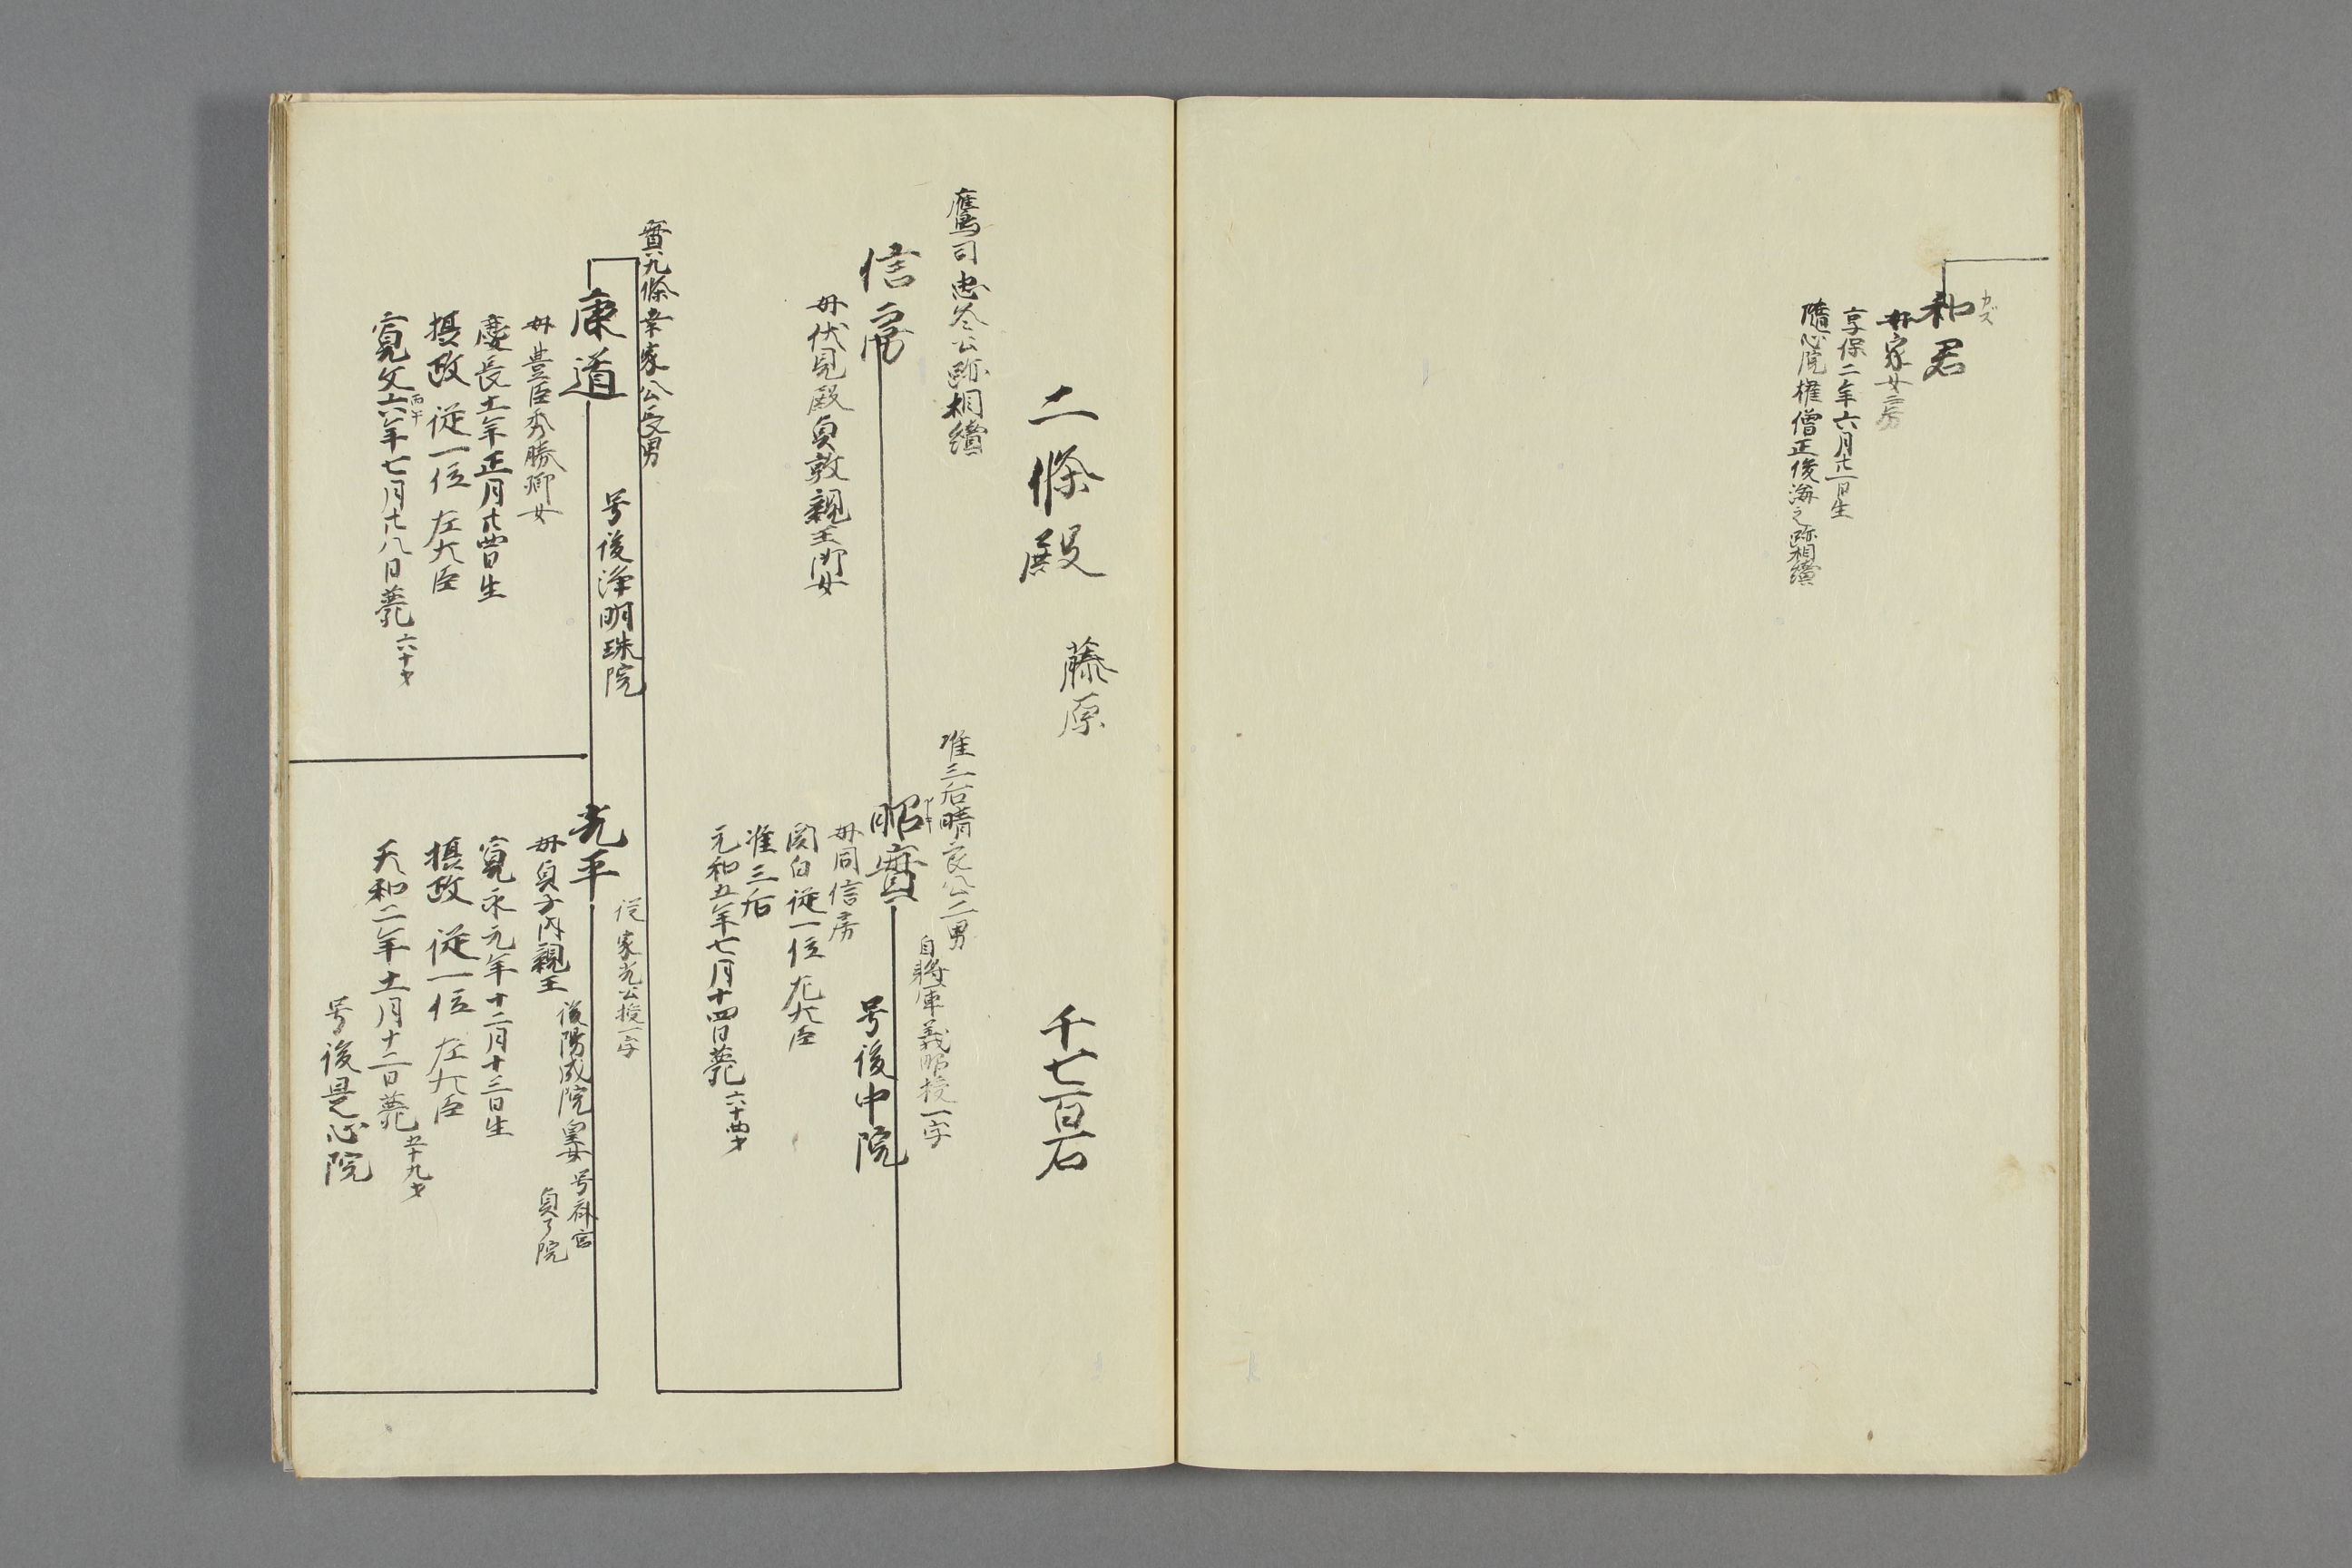 カズ
和君
母家女房
享保二年六月廿一日生
隨心院権僧正俊海之跡相續
二條殿 藤原 千七百石
鷹司忠冬公跡相續
信房
母伏見殿貞敦親王御女
准三后晴良公二男
昭實
自將軍義昭授一字
号後中院
母同信房
関白従一位左大臣
准三后
元和五年七月十四日薨 六十四才
實九條幸家公二男
康道
号後浄明珠院
母豊臣秀勝卿女
慶長十二年正月廿四日生
摂政 従一位 左大臣
寛文六年丙午七月廿八日薨 六十才
従家光公授一字
光平
母貞子内親王 後陽成院皇女 号
貞了院
寛永元年十二月十三日生
摂政 従一位 左大臣
天和二年十一月十二日薨 五十九才
号後是心院